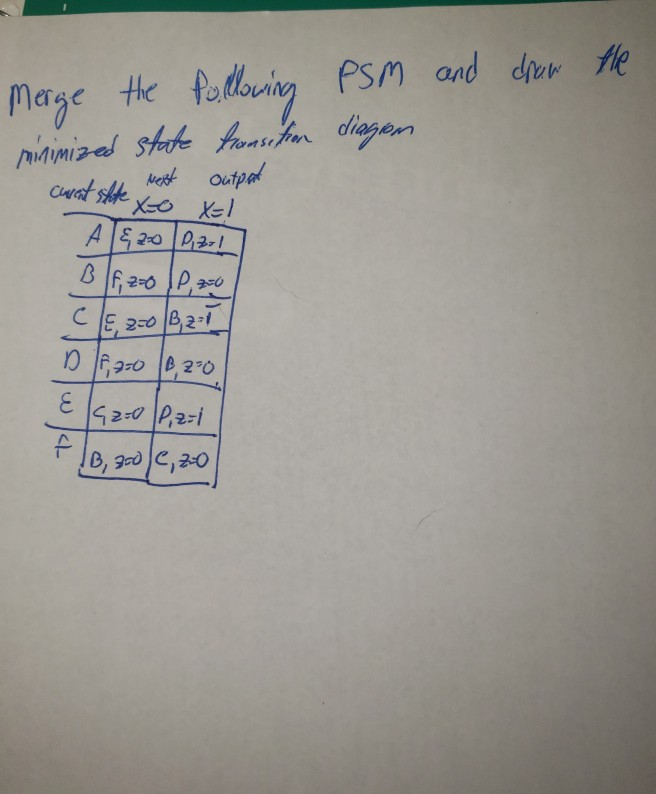 Merge the following PSM and draw the
minimized state transition diagram
current state next output
X=0 X=1
A E, z=0 D, z=1
B F, z=0 D, z=0
C E, z=0 B, z=1
D F, z=0 B, z=0
E C, z=0 D, z=1
F B, z=0 C, z=0